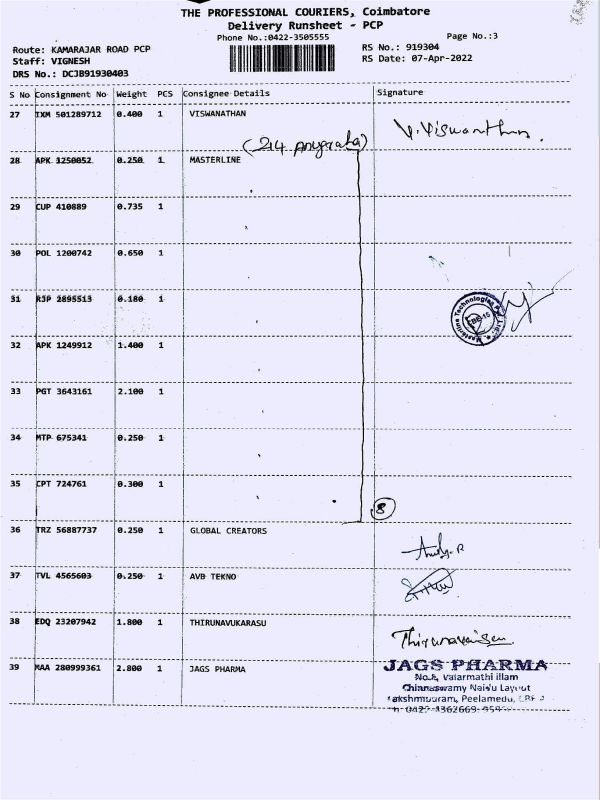 THE PROFESSIONAL COURIERS, Coimbatore
Delivery Runsheet - PCP
Phone No.:0422-3505555
Page No.:3
Route: KAMARAJAR ROAD PCP
RS No.: 919304
Staff: VIGNESH
RS Date: 07-Apr-2022
DRS No.: DCJB91930403
S No Consignment No Weight PCS Consignee Details Signature
27 IXM 501289712 0.400 1 VISWANATHAN V.Viswanthan.
(214 Anugraha)
28 APK 1250052 0.250 1 MASTERLINE
29 CUP 410889 0.735 1
30 POL 1200742 0.650 1
31 RJP 2895513 0.180 1
Masterline Technologies Pvt. Ltd.
CBE-15
32 APK 1249912 1.400 1
33 PGT 3643161 2.100 1
34 MTP 675341 0.250 1
35 CPT 724761 0.300 1
8
36 TRZ 56887737 0.250 1 GLOBAL CREATORS
37 TVL 4565603 0.250 1 AVB TEKNO
38 EDQ 23207942 1.800 1 THIRUNAVUKARASU
39 MAA 280999361 2.800 1 JAGS PHARMA
JAGS PHARMA
No.8, Valarmathi illam
Chinnaswamy Naidu Layout
Lakshmipuram, Peelamedu,
0422